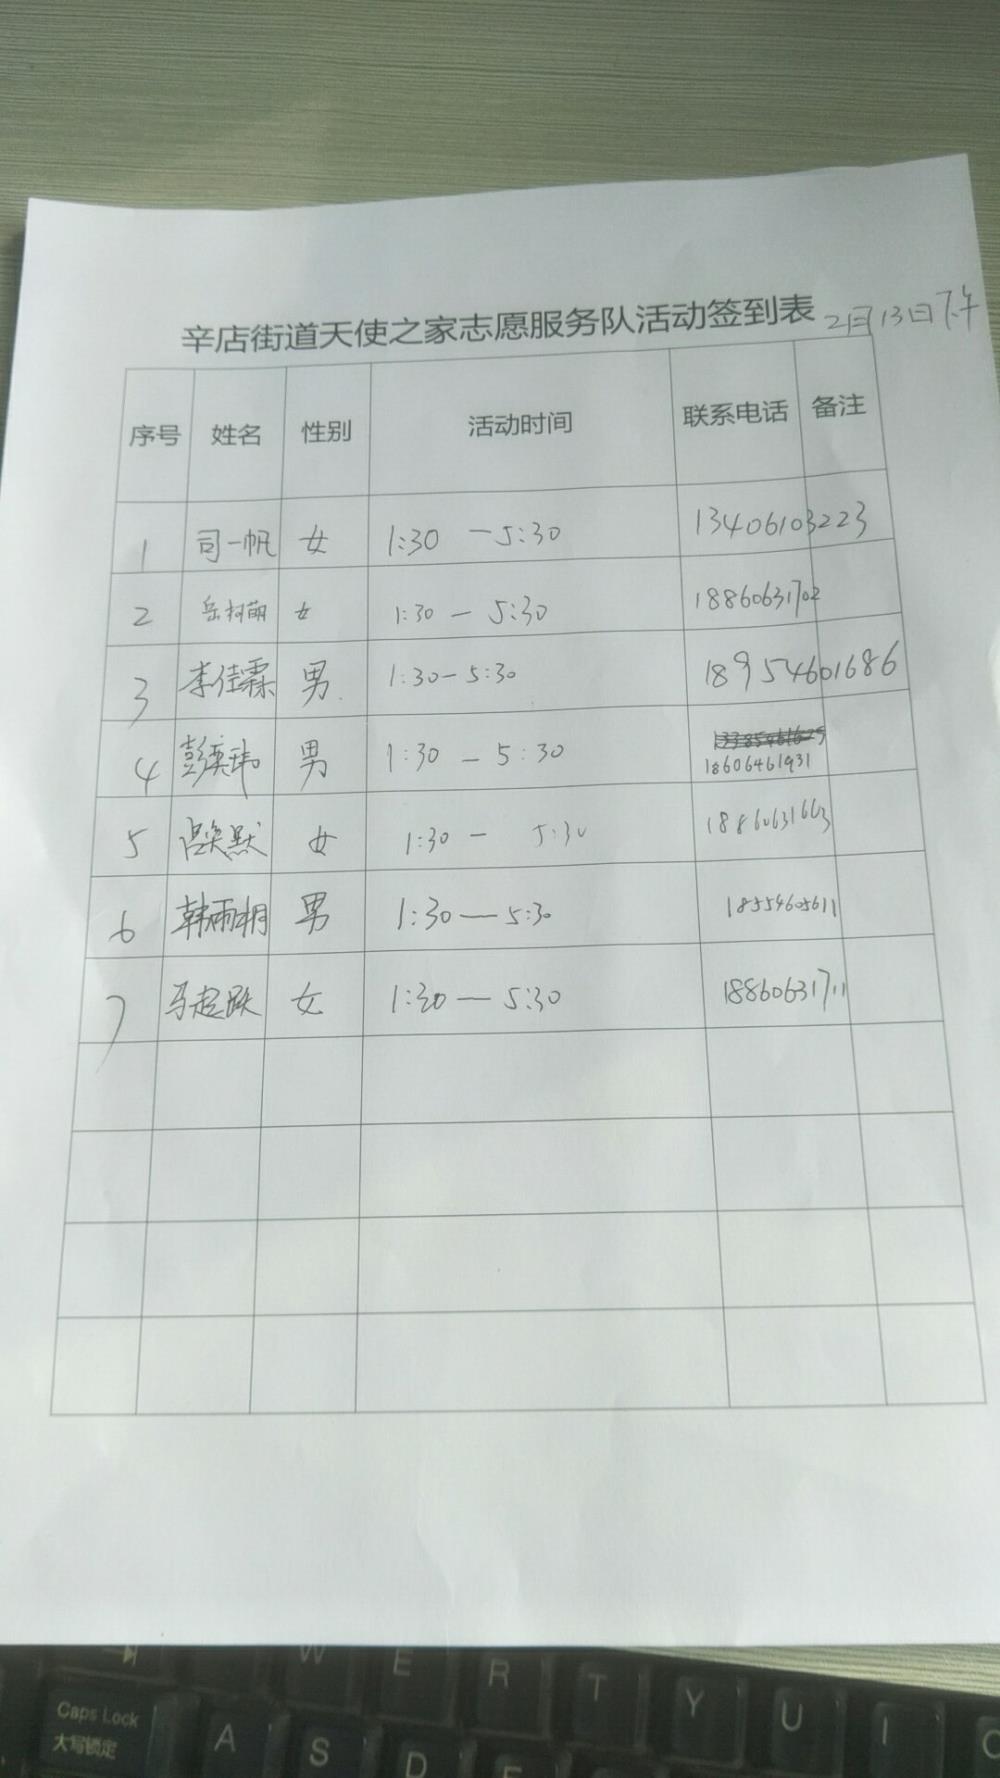 辛店街道天使之家志愿服务队活动签到表 2月13日下午
序号 姓名 性别 活动时间 联系电话 备注
1 司一帆 女 1:30 — 5:30 13406103223
2 岳柯萌 女 1:30 — 5:30 18860631702
3 李佳霖 男 1:30 — 5:30 18954601686
4 彭奕玮 男 1:30 — 5:30 18606461931
5 默 女 1:30 — 5:30 18860631663
6 韩雨桐 男 1:30 — 5:30 18554605611
7 马起跃 女 1:30 — 5:30 18860631711
W E R T Y U I
Caps Lock
大写锁定
A S D